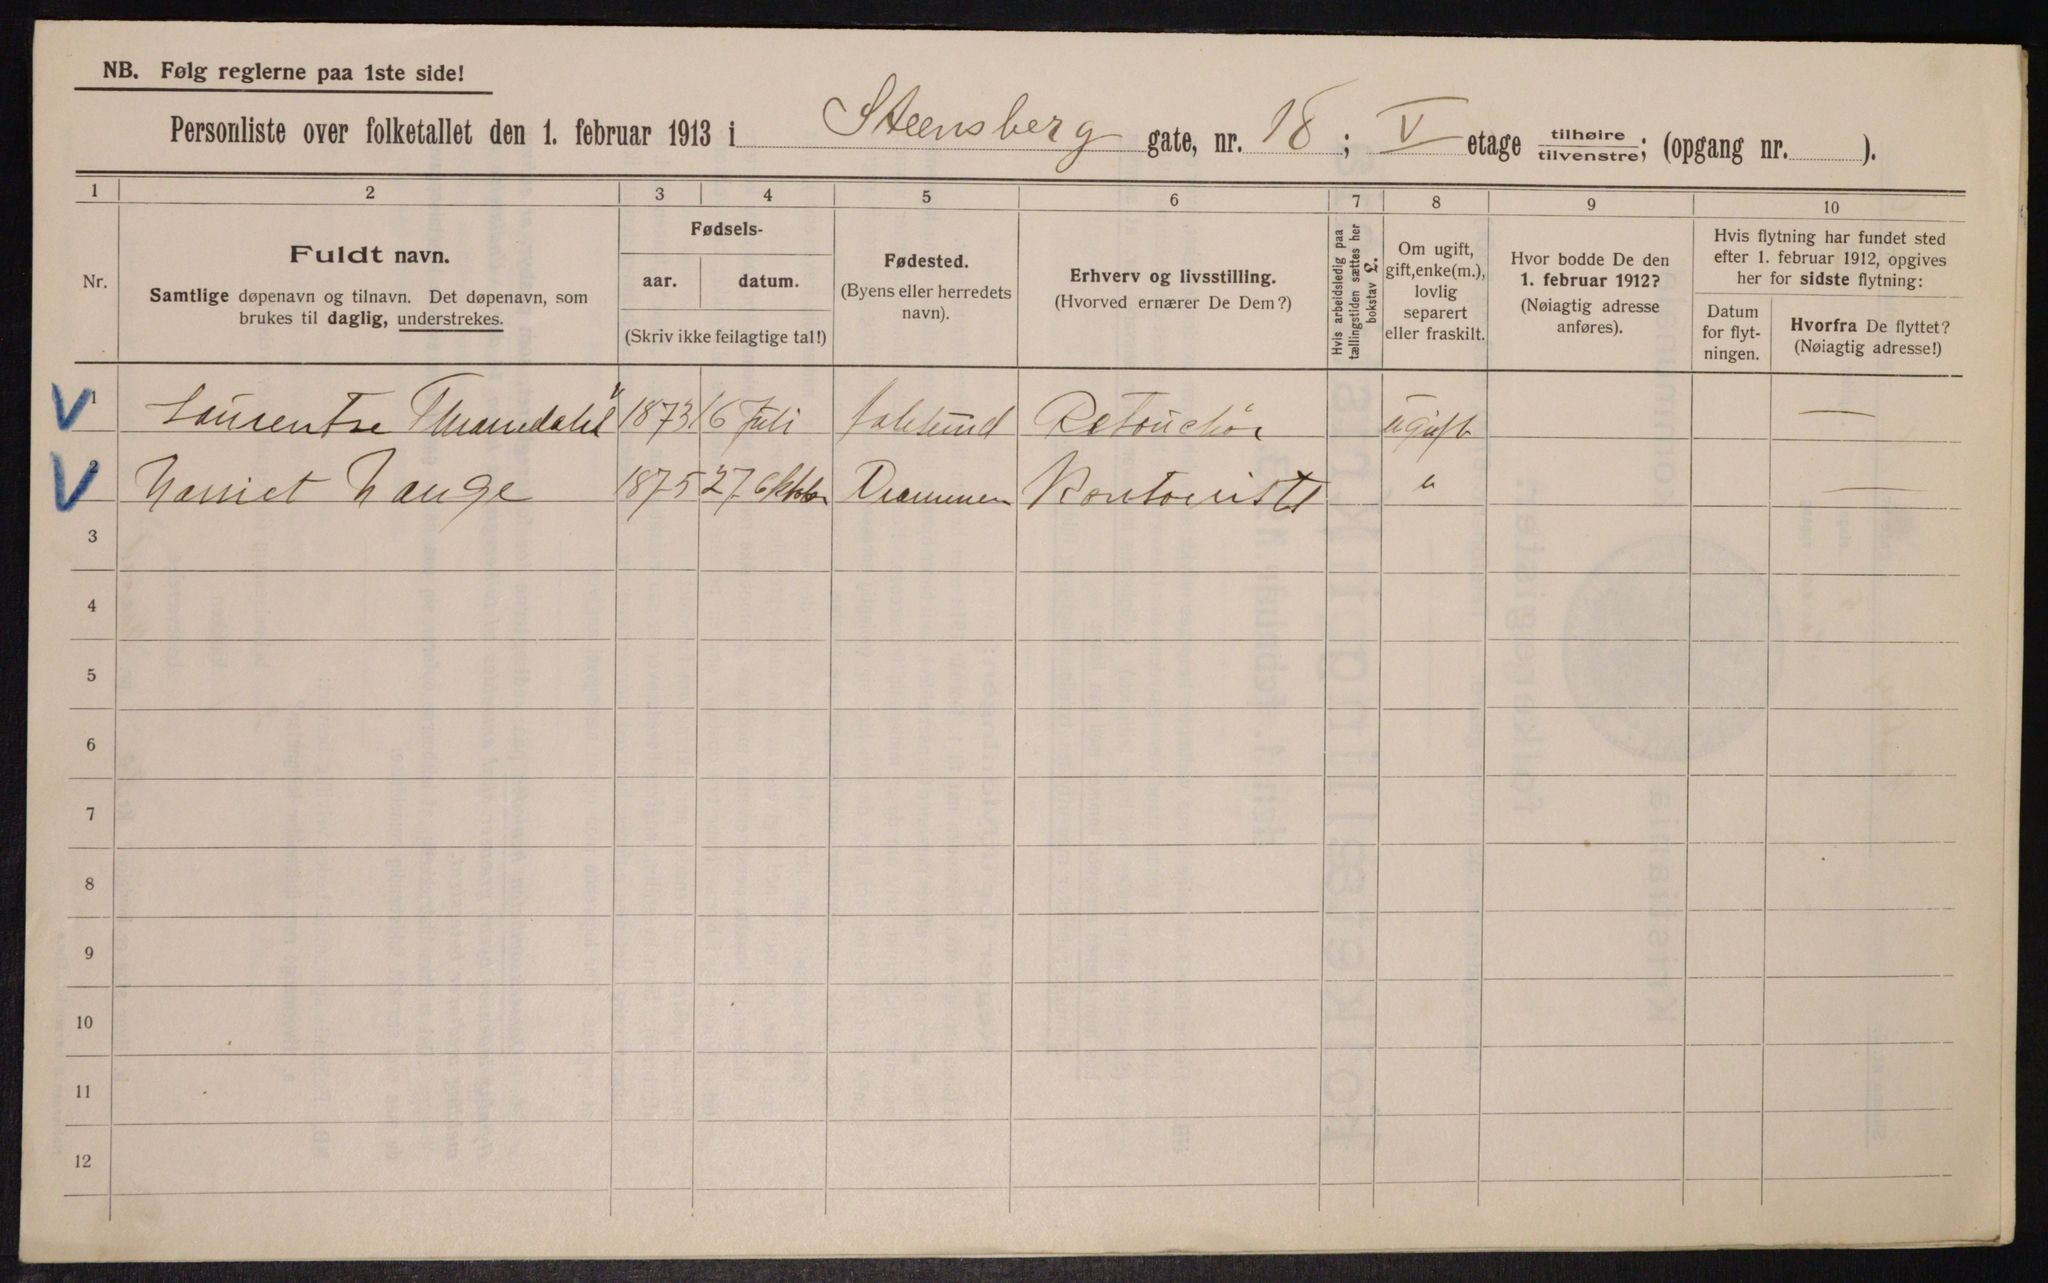 NB. Følg reglerne paa 1ste side!
Personliste over folketallet den 1. februar 1913 i Steensberg gate, nr. 18; V etage tilhøire/tilvenstre; (opgang nr. ).
1 2 3 4 5 6 7 8 9 10
Nr.
Fuldt navn.
Samtlige døpenavn og tilnavn. Det døpenavn, som
brukes til daglig, understrekes.
Fødsels-
aar. datum.
(Skriv ikke feilagtige tal!)
Fødested.
(Byens eller herredets
navn).
Erhverv og livsstilling.
(Hvorved ernærer De Dem?)
Hvis arbeidsledig paa
tællingstiden sættes her
bokstav L.
Om ugift,
gift, enke(m.),
lovlig
separert
eller fraskilt.
Hvor bodde De den
1. februar 1912?
(Nøiagtig adresse
anføres).
Hvis flytning har fundet sted
efter 1. februar 1912, opgives
her for sidste flytning:
Datum
for flyt-
ningen.
Hvorfra De flyttet?
(Nøiagtig adresse!)
V 1 Laurentse 1873 16 Juli Retouchør ugift —
V 2 Harriet Hauge 1875 27 Oktober Drammen Kontorist " —
3
4
5
6
7
8
9
10
11
12